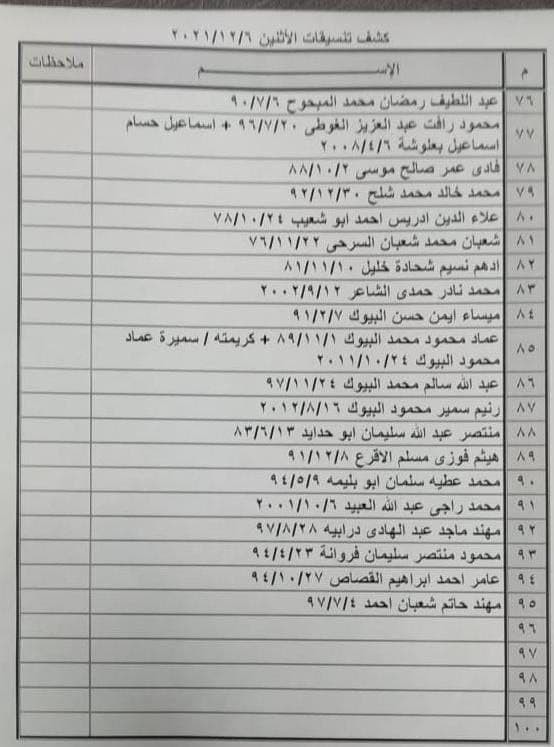 كشف تنسيقات الأثنين ٢٠٢١/١٢/٦
م الإســـــــم ملاحظات
٧٦ عبد اللطيف رمضان محمد المبحوح ٩٠/٧/٦
٧٧ محمود رافت عبد العزيز الغوطى ٩٦/٧/٢٠ + اسماعيل حسام
اسماعيل بعلوشة ٢٠٠٨/٤/٦
٧٨ فادى عمر صالح موسى ٨٨/١٠/٢
٧٩ محمد خالد محمد شلح ٩٢/١٢/٣٠
٨٠ علاء الدين ادريس احمد ابو شعيب ٧٨/١٠/٢٤
٨١ شعبان محمد شعبان السرحى ٧٦/١١/٢٢
٨٢ ادهم نسيم شحادة خليل ٨١/١١/١٠
٨٣ محمد نادر حمدى الشاعر ٢٠٠٢/٩/١٢
٨٤ ميساء ايمن حسن البيوك ٩١/٢/٧
٨٥ عماد محمود محمد البيوك ٨٩/١١/١ + كريمته / سميرة عماد
محمود البيوك ٢٠١١/١٠/٢٤
٨٦ عبد الله سالم محمد البيوك ٩٧/١١/٢٤
٨٧ رنيم سمير محمود البيوك ٢٠١٢/٨/١٦
٨٨ منتصر عبد الله سليمان ابو حدايد ٨٣/٦/١٣
٨٩ هيثم فوزى مسلم الاقرع ٩١/١٢/٨
٩٠ محمد عطيه سلمان ابو بليمه ٩٤/٥/٩
٩١ محمد راجى عبد الله العبيد ٢٠٠١/١٠/٦
٩٢ مهند ماجد عبد الهادى درابيه ٩٧/٨/٢٨
٩٣ محمود منتصر سليمان فروانة ٩٤/٤/٢٣
٩٤ عامر احمد ابراهيم القصاص ٩٤/١٠/٢٧
٩٥ مهند حاتم شعبان احمد ٩٧/٧/٤
٩٦
٩٧
٩٨
٩٩
١٠٠